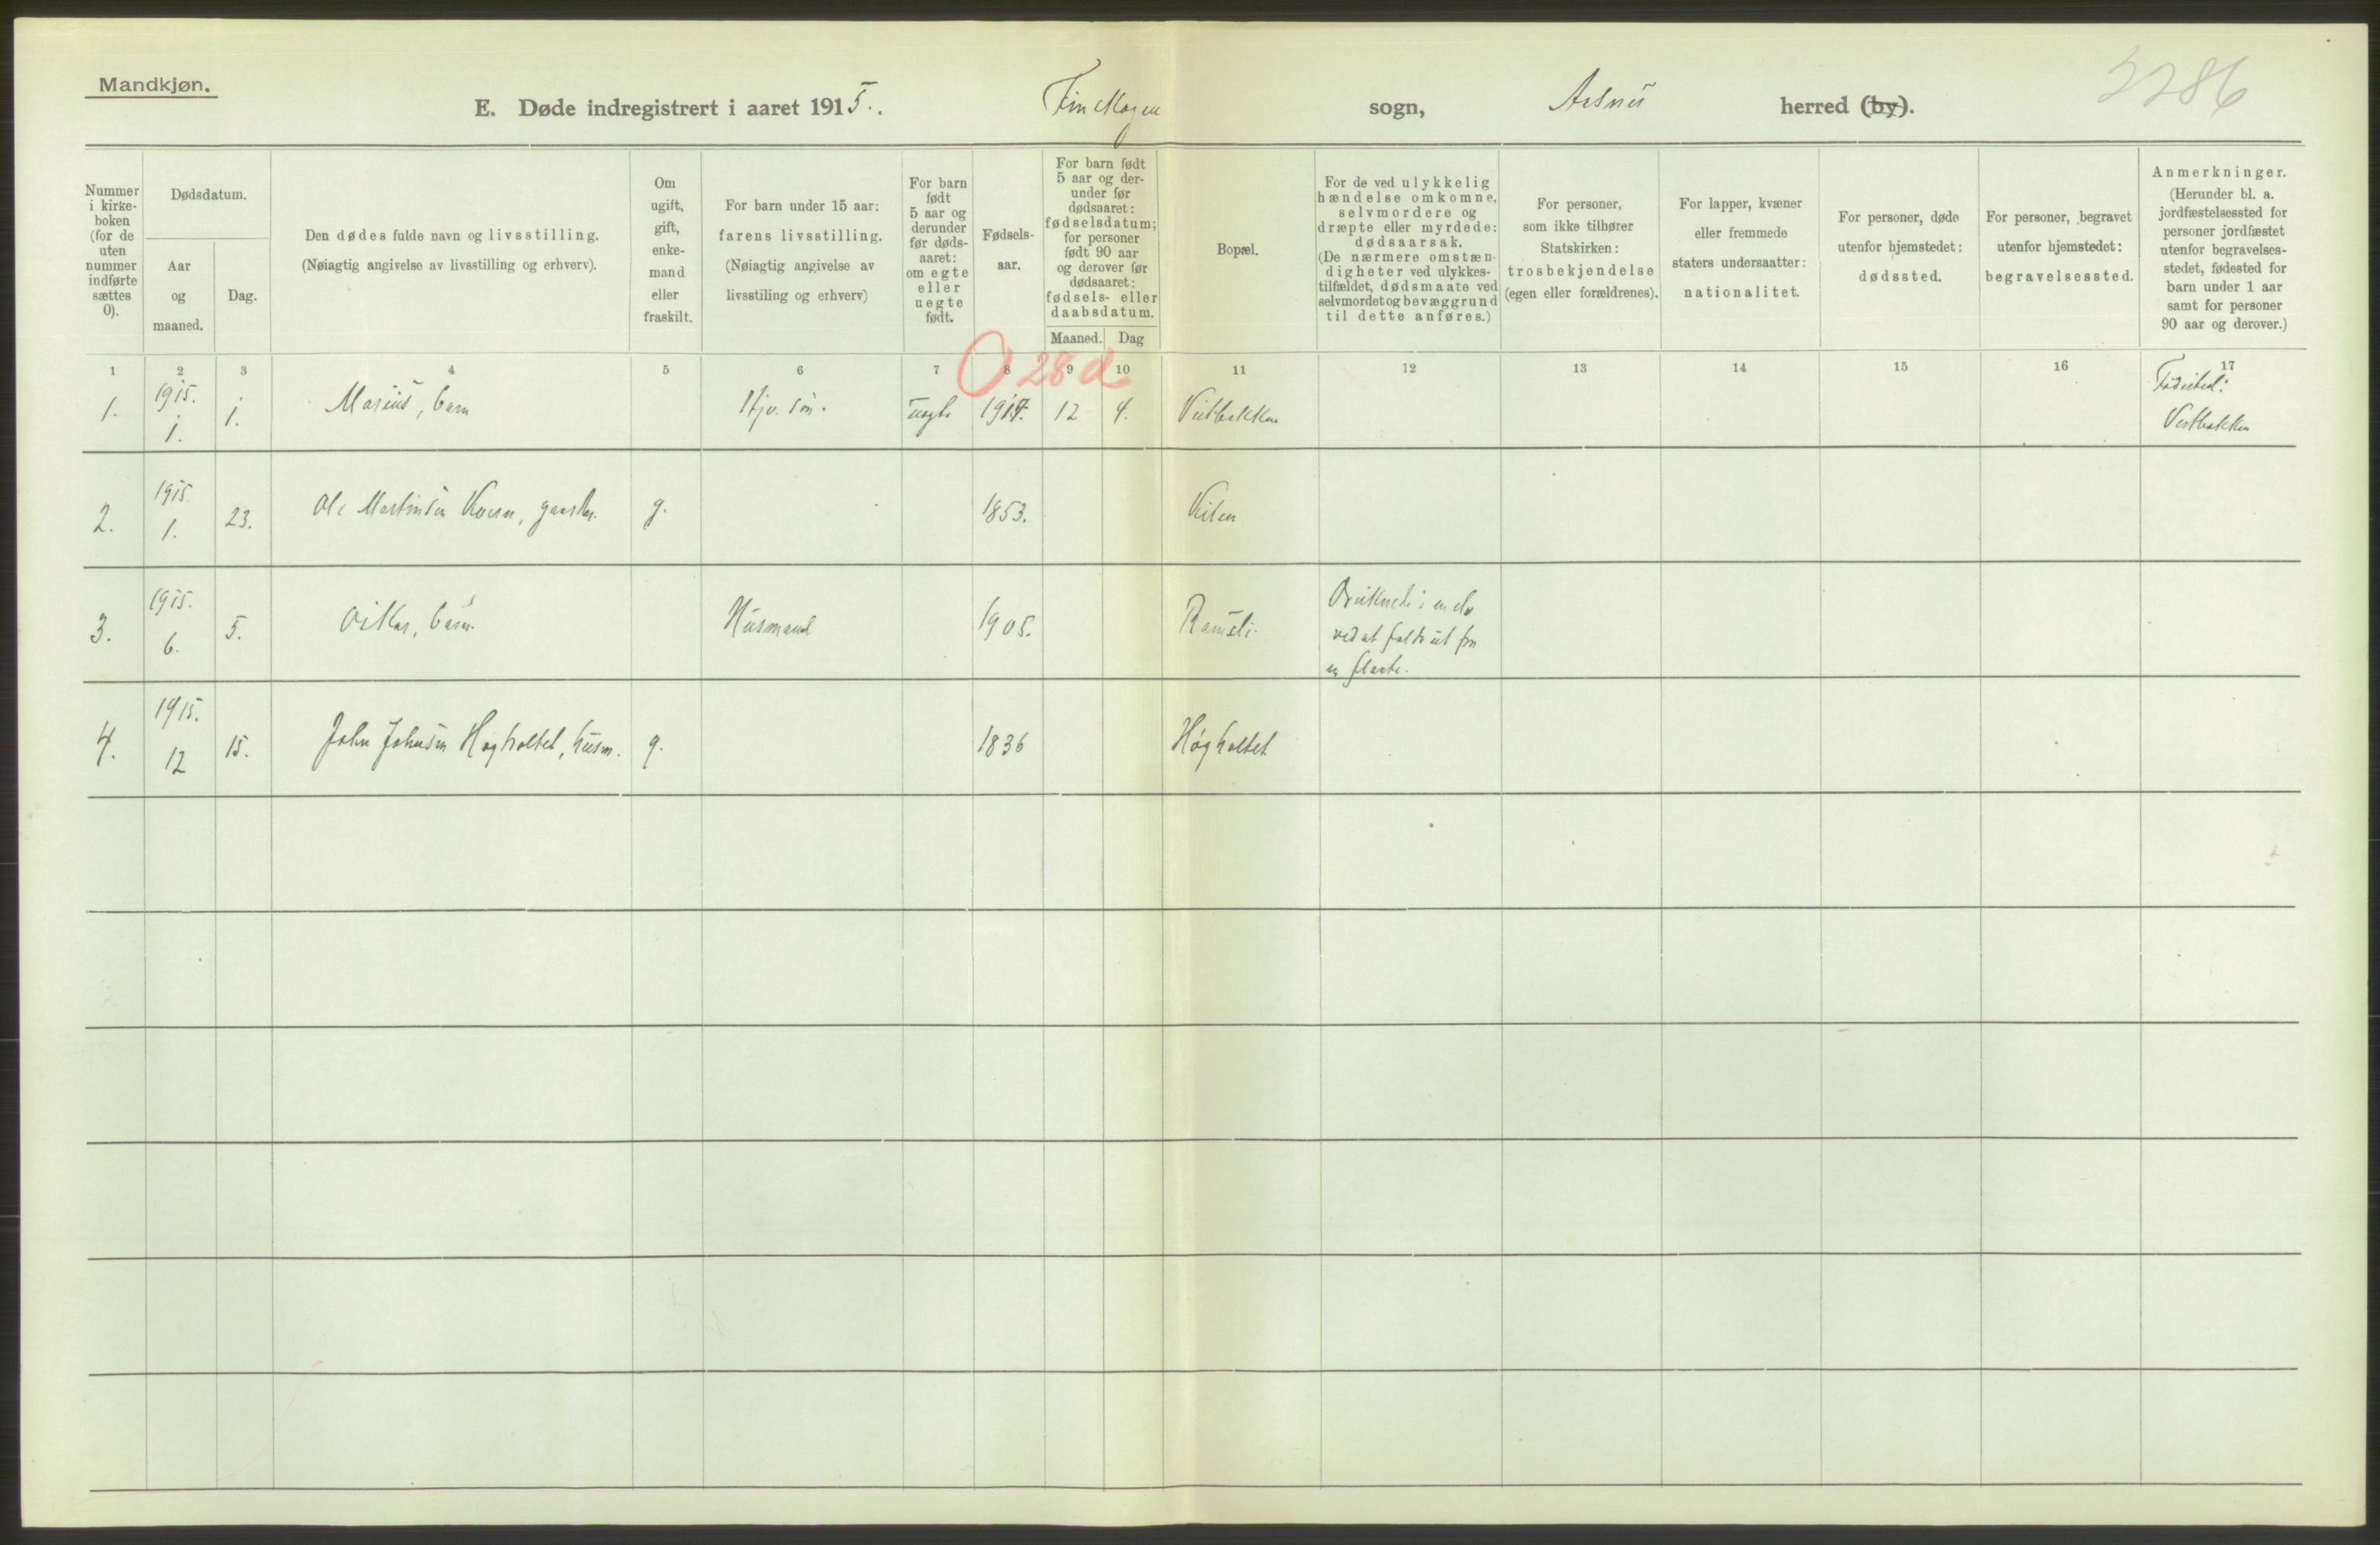 Mandkjøn.
E. Døde indregistrert i aaret 1915. Finskogen sogn, Aasnes herred (by).
3286
Nummer i kirke- boken (for de uten nummer indførte sættes 0).
Dødsdatum.
Aar og maaned.
Dag.
Den dødes fulde navn og livsstilling.
(Nøiagtig angivelse av livsstilling og erhverv).
Om ugift, gift, enke- mand eller fraskilt.
For barn under 15 aar:
farens livsstilling.
(Nøiagtig angivelse av
livsstiling og erhverv)
For barn født 5 aar og derunder før døds- aaret: om egte eller uegte født.
Fødsels- aar.
For barn født
5 aar og der-
under før
dødsaaret:
fødselsdatum;
for personer
født 90 aar
og derover før
dødsaaret:
fødsels- eller
daabsdatum.
Maaned. Dag
Bopæl.
For de ved ulykkelig
hændelse omkomne,
selvmordere og
dræpte eller myrdede:
dødsaarsak.
(De nærmere omstæn-
digheter ved ulykkes-
tilfældet, dødsmaate ved
selvmordet og bevæggrund
til dette anføres.)
For personer,
som ikke tilhører
Statskirken:
trosbekjendelse
(egen eller forældrenes).
For lapper, kvæner
eller fremmede
staters undersaatter:
nationalitet.
For personer, døde
utenfor hjemstedet:
dødssted.
For personer, begravet
utenfor hjemstedet:
begravelsessted.
Anmerkninger.
(Herunder bl. a.
jordfæstelsessted for
personer jordfæstet
utenfor begravelses-
stedet, fødested for
barn under 1 aar
samt for personer
90 aar og derover.)
1 2 3 4 5 6 7 8 9 10 11 12 13 14 15 16 17
0 28 d
1. 1915. 1. 1. Marius, barn uegte 1914. 12 4. Vestbakken Fødested: Vestbakken
2. 1915. 1. 23. Ole Martinsen gaardbr. g. 1853. Kilen
3. 1915. 6. 5. Oskar, barn. Husmand 1905. Ramsli. Druknede i en elv
ved at falde ut fra
en flaate.
4. 1915. 12 15. John Johnsen Høgholtet, husm. g. 1836 Høgholtet